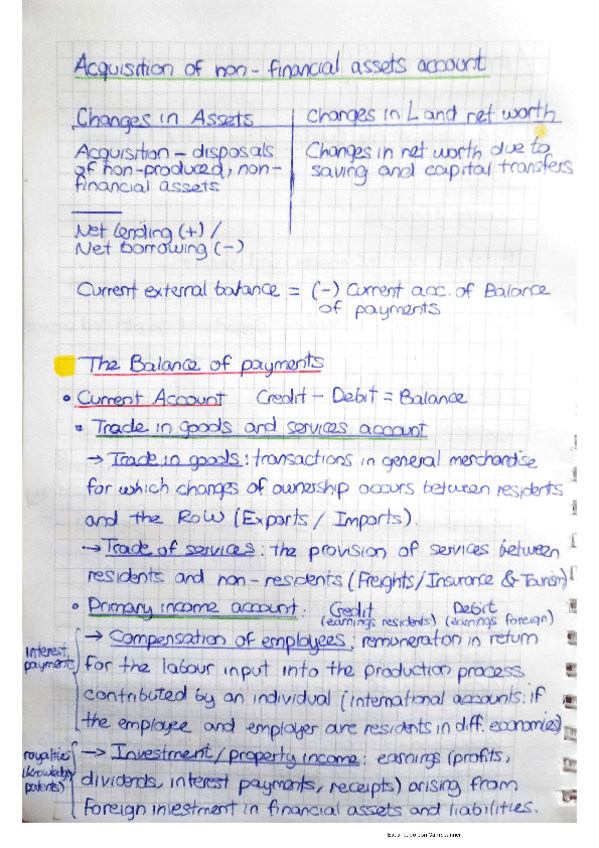 Acquisition of non-financial assets account
Changes in Assets
Changes in L and net worth
Acquisition - disposals
of non-produced, non-
financial assets
Changes in net worth due to
saving and capital transfers
Net lending (+) /
Net borrowing (-)
Current external balance = (-) Current acc. of Balance
of payments
The Balance of payments
• Current Account Credit - Debit = Balance
• Trade in goods and services account
→ Trade in goods: transactions in general merchandise
for which changes of ownership occurs between residents
and the RoW (Exports / Imports).
→ Trade of services: the provision of services between
residents and non-residents (Freights/Insurance & Tourism)
• Primary income account: Credit Debit
(earnings residents) (earnings foreign)
→ Compensation of employees: remuneration in return
interest,
payments
for the labour input into the production process
contributed by an individual (international accounts: if
the employee and employer are residents in diff. economies)
royalties
(knowledge
patents)
→ Investment/property income: earnings (profits,
dividends, interest payments, receipts) arising from
foreign investment in financial assets and liabilities.